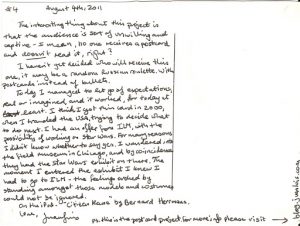 #4 August 4th, 2011
The interesting thing about this project is
that the audience is sort of unwilling and
captive - I mean, no one receives a postcard
and doesn't read it, right?
I haven't yet decided who will receive this
one, it may be a random Russian roulette, with
postcards instead of bullets.
Today I managed to let go of expectations,
real or imagined, and it worked, for today at
least. I think I got this card in 2000,
when I traveled the USA, trying to decide what
to do next. I had an offer from ILM, with the
possibility of working on Star Wars. For many reasons
I didn't know whether to say yes. I wandered into
the Field Museum in Chicago, and by coincidence
they had the Star Wars exhibit on there. The
moment I entered the exhibit I knew I
had to go to ILM - the feelings evoked by
standing amongst those models and costumes
could not be ignored.
On the iPod - Citizen Kane by Bernard Herrmann.
Love,
ps. this is the postcard project. For more info please visit →